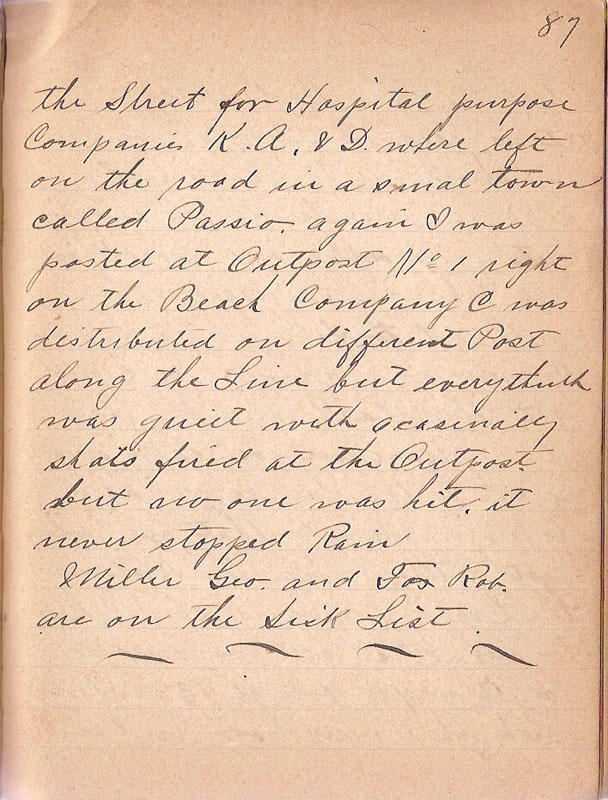 87
the Street for Hospital purpose
Companies K. A. & D. where left
on the road in a smal town
called Passio. again I was
posted at Outpost No 1 right
on the Beach Company C was
distributed on different Post
along the Line but everythink
was quiet with
shots fired at the Outpost.
but no one was hit. it
never stopped Rain
Miller Geo. and Fox Rob.
are on the Sick List.